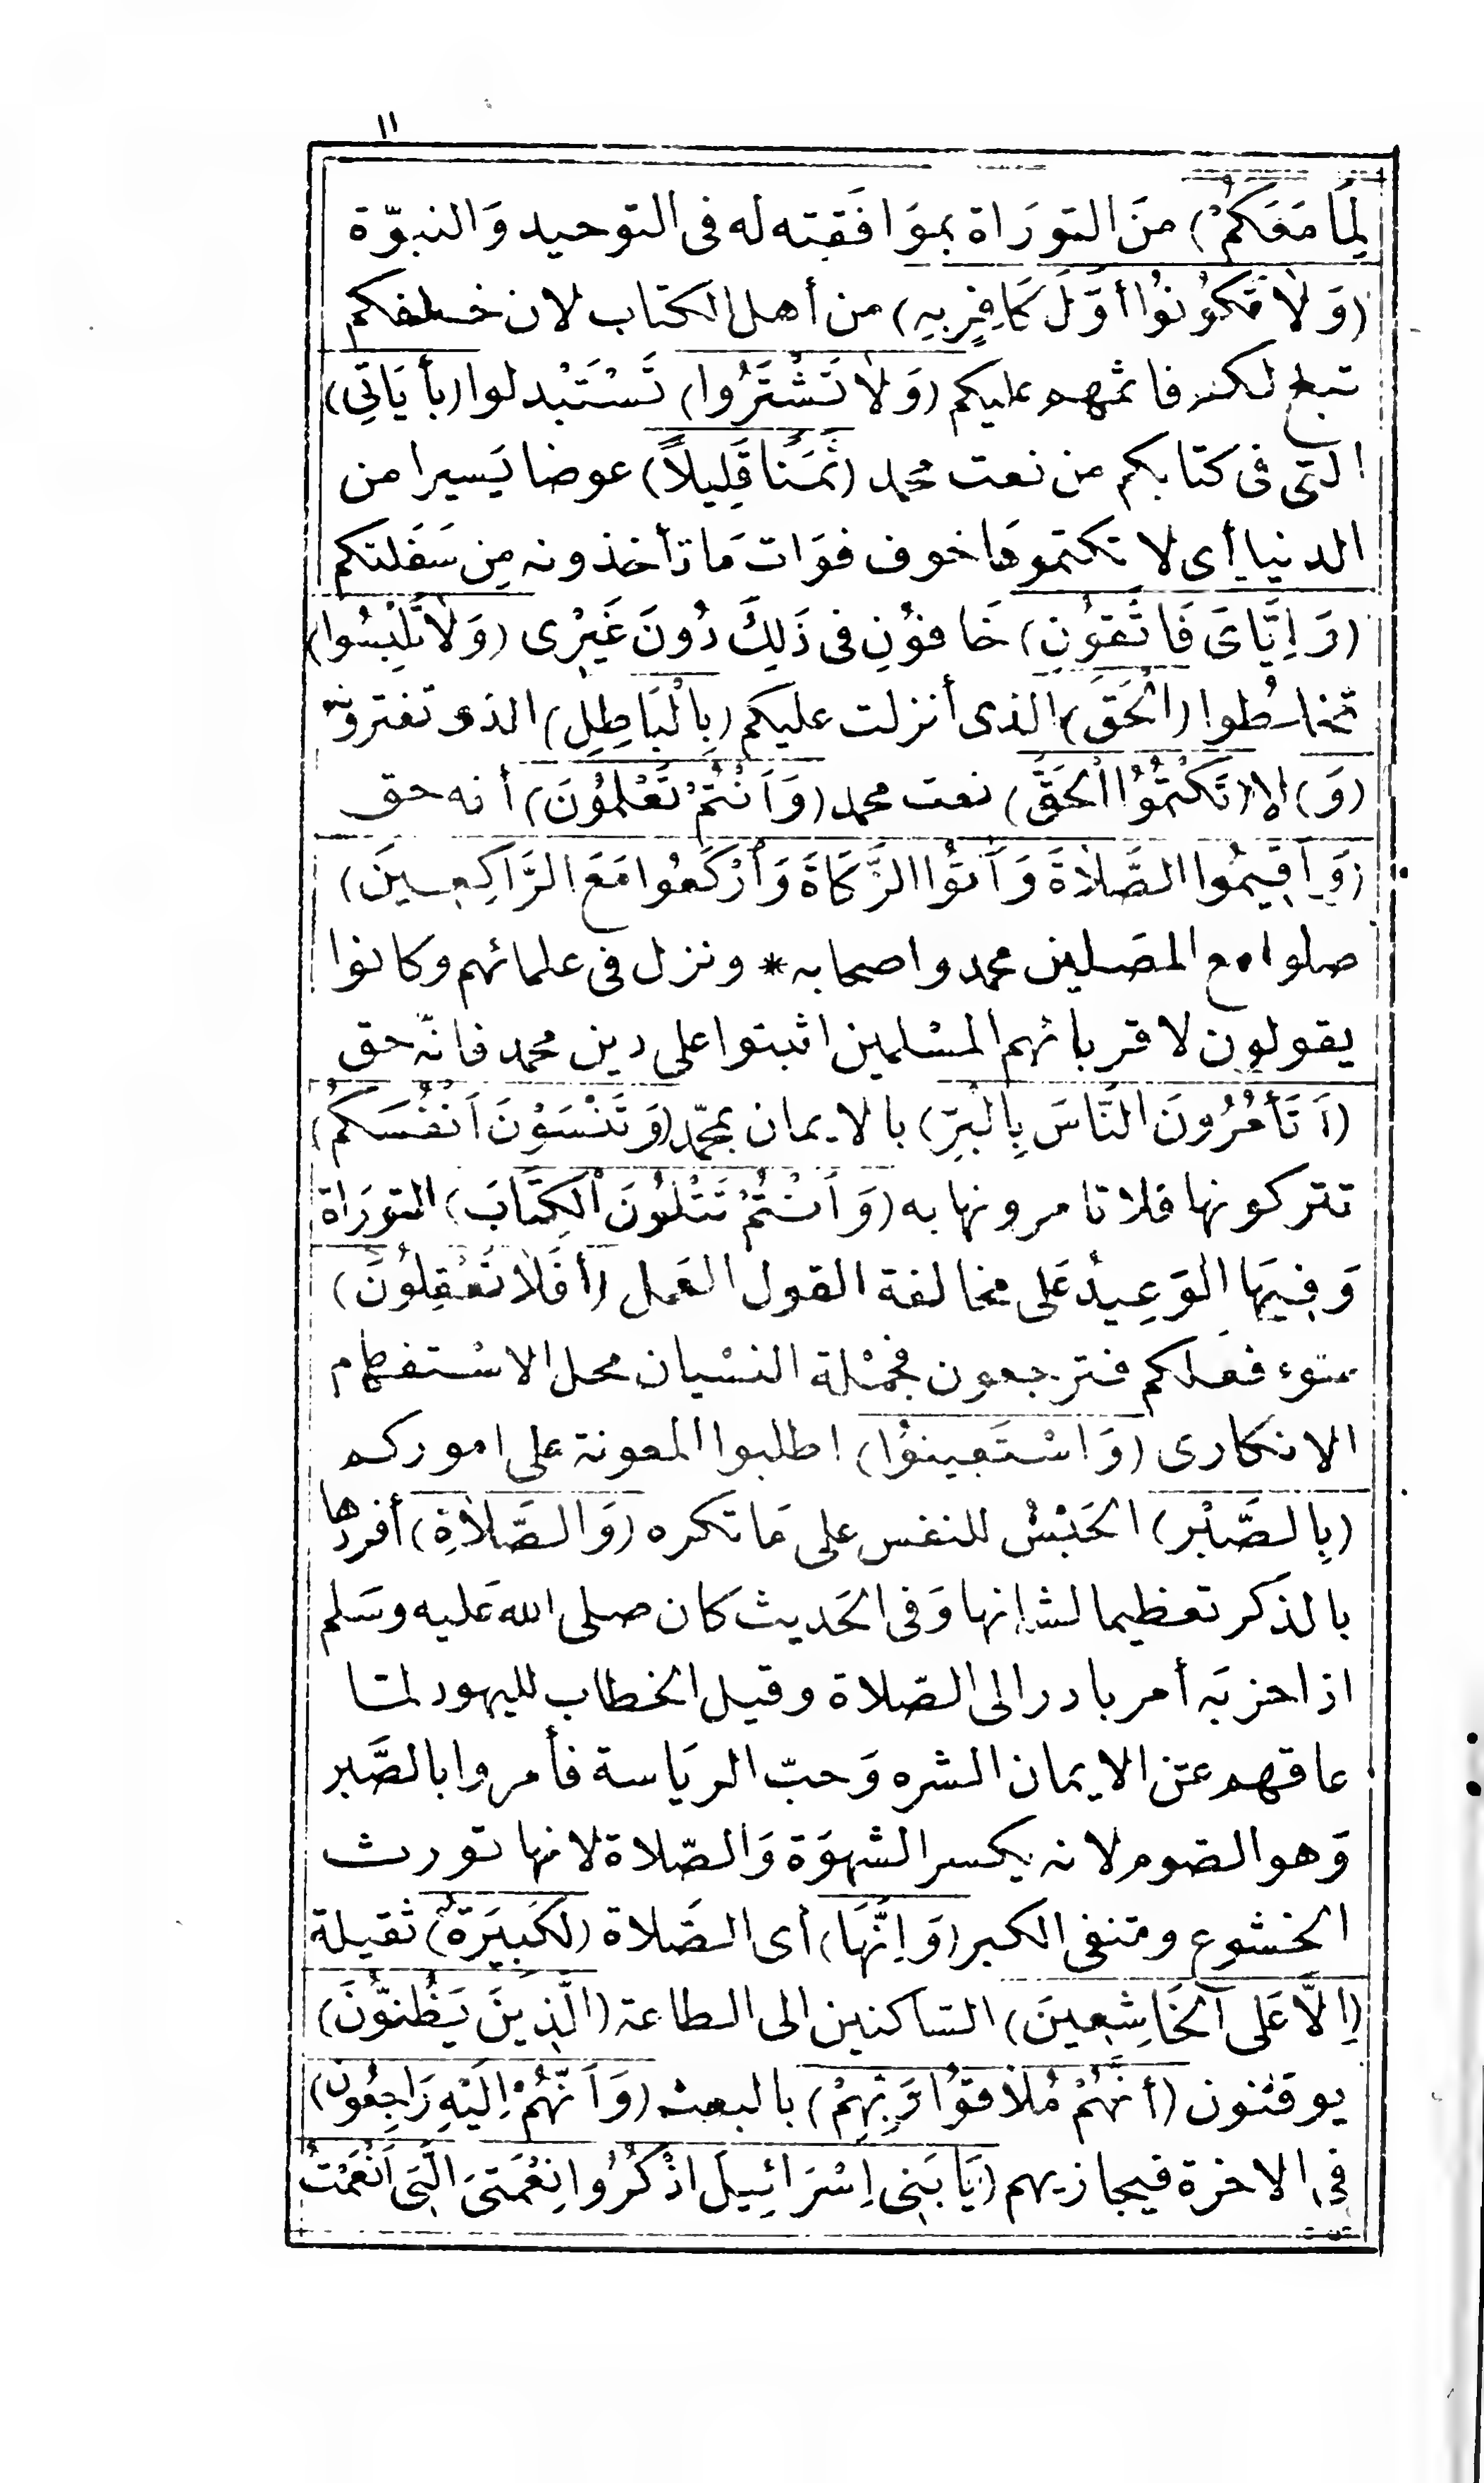 ١١
لِمَا مَعَكُمْ) منَ التورَاة بموَافَقته له فى التوحيد وَالنبوّة
(وَلَا تَكُونُوا أَوَّلَ كَافِرٍ بِهِ) من أهل الكتاب لان خلفكم
تبع لكم فاثمهم عليكم (وَلَا تَشْتَرُوا) تَسْتَبْدلوا (بأيَاتِى)
التى فى كتابكم من نعت محمد (ثَمَنًا قَلِيلاً) عوضا يَسيرا من
الدنيا أى لا تكتموهَا خوف فوَات مَا تأخذونه مِن سَفَلتكم
(وَإِيَّاىَ فَاتَّقُونِ) خَافوُنِ فى ذَلِكَ دُونَ غَيْرِى (وَلَا تَلْبِسُوا)
تخلطُوا (الْحَقَّ) الذى أنزلت عليكم (بِالْبَاطِلِ) الذى تفترونه
(وَ) لا (تَكْتُمُوا الْحَقَّ) نعت محمد (وَأَنْتُمْ تَعْلَمُونَ) أنه حق
(وَأَقِيمُوا الصَّلَاةَ وَآتُوا الزَّكَاةَ وَارْكَعُوا مَعَ الرَّاكِعِينَ)
صلوا مع المصَلين محمد واصحابه * ونزل فى علمائهم وكانوا
يقولون لاقربائهم المسْلمين اثبتوا على دين محمد فانّه حق
(أَتَأْمُرُونَ النَّاسَ بِالْبِرِّ) بالايمان بمحمّد (وَتَنْسَوْنَ أَنْفُسَكُمْ)
تتركونها فلا تامرونها به (وَأَنْتُمْ تَتْلُونَ الْكِتَابَ) التورَاة
وَفِيهَا الْوَعِيدُ عَلى مخالفة القول العَمل (أفَلَا تَعْقِلُونَ)
سوء فعلكم فترجعون فجمْلة النسْيان محل الاسْتفهام
الانكارى (وَاسْتَعِينُوا) اطلبوا المعونة على اموركم
(بِالصَّبْرِ) الحَبْسُ للنفس على مَا تكره (وَالصَّلَاةِ) أفردها
بالذكر تعظيما لشانها وَفى الحَديث كان صلى الله عَليه وسَلم
اذا حزبَه أمر بادر الى الصّلاة وقيل الخطاب لليهود لمّا
عاقهم عن الايمان الشره وَحبّ الريَاسة فأمروا بالصَّبر
وَهو الصّوم لانه يكسر الشهوَة وَالصّلاة لانها تورث
الخشوع وتنفى الكبر (وَإِنَّهَا) أى الصَّلاة (لَكَبِيرَةٌ) ثقيلة
(إِلَّا عَلَى الْخَاشِعِينَ) السّاكنين الى الطاعة (الَّذِينَ يَظُنُّونَ)
يوقنون (أَنَّهُمْ مُلَاقُوا رَبِّهِمْ) بالبعث (وَأَنَّهُمْ إِلَيْهِ رَاجِعُونَ)
فى الاخرة فيجازيهم (يَا بَنِى إِسْرَائِيلَ اذْكُرُوا نِعْمَتِىَ الَّتِى أَنْعَمْتُ